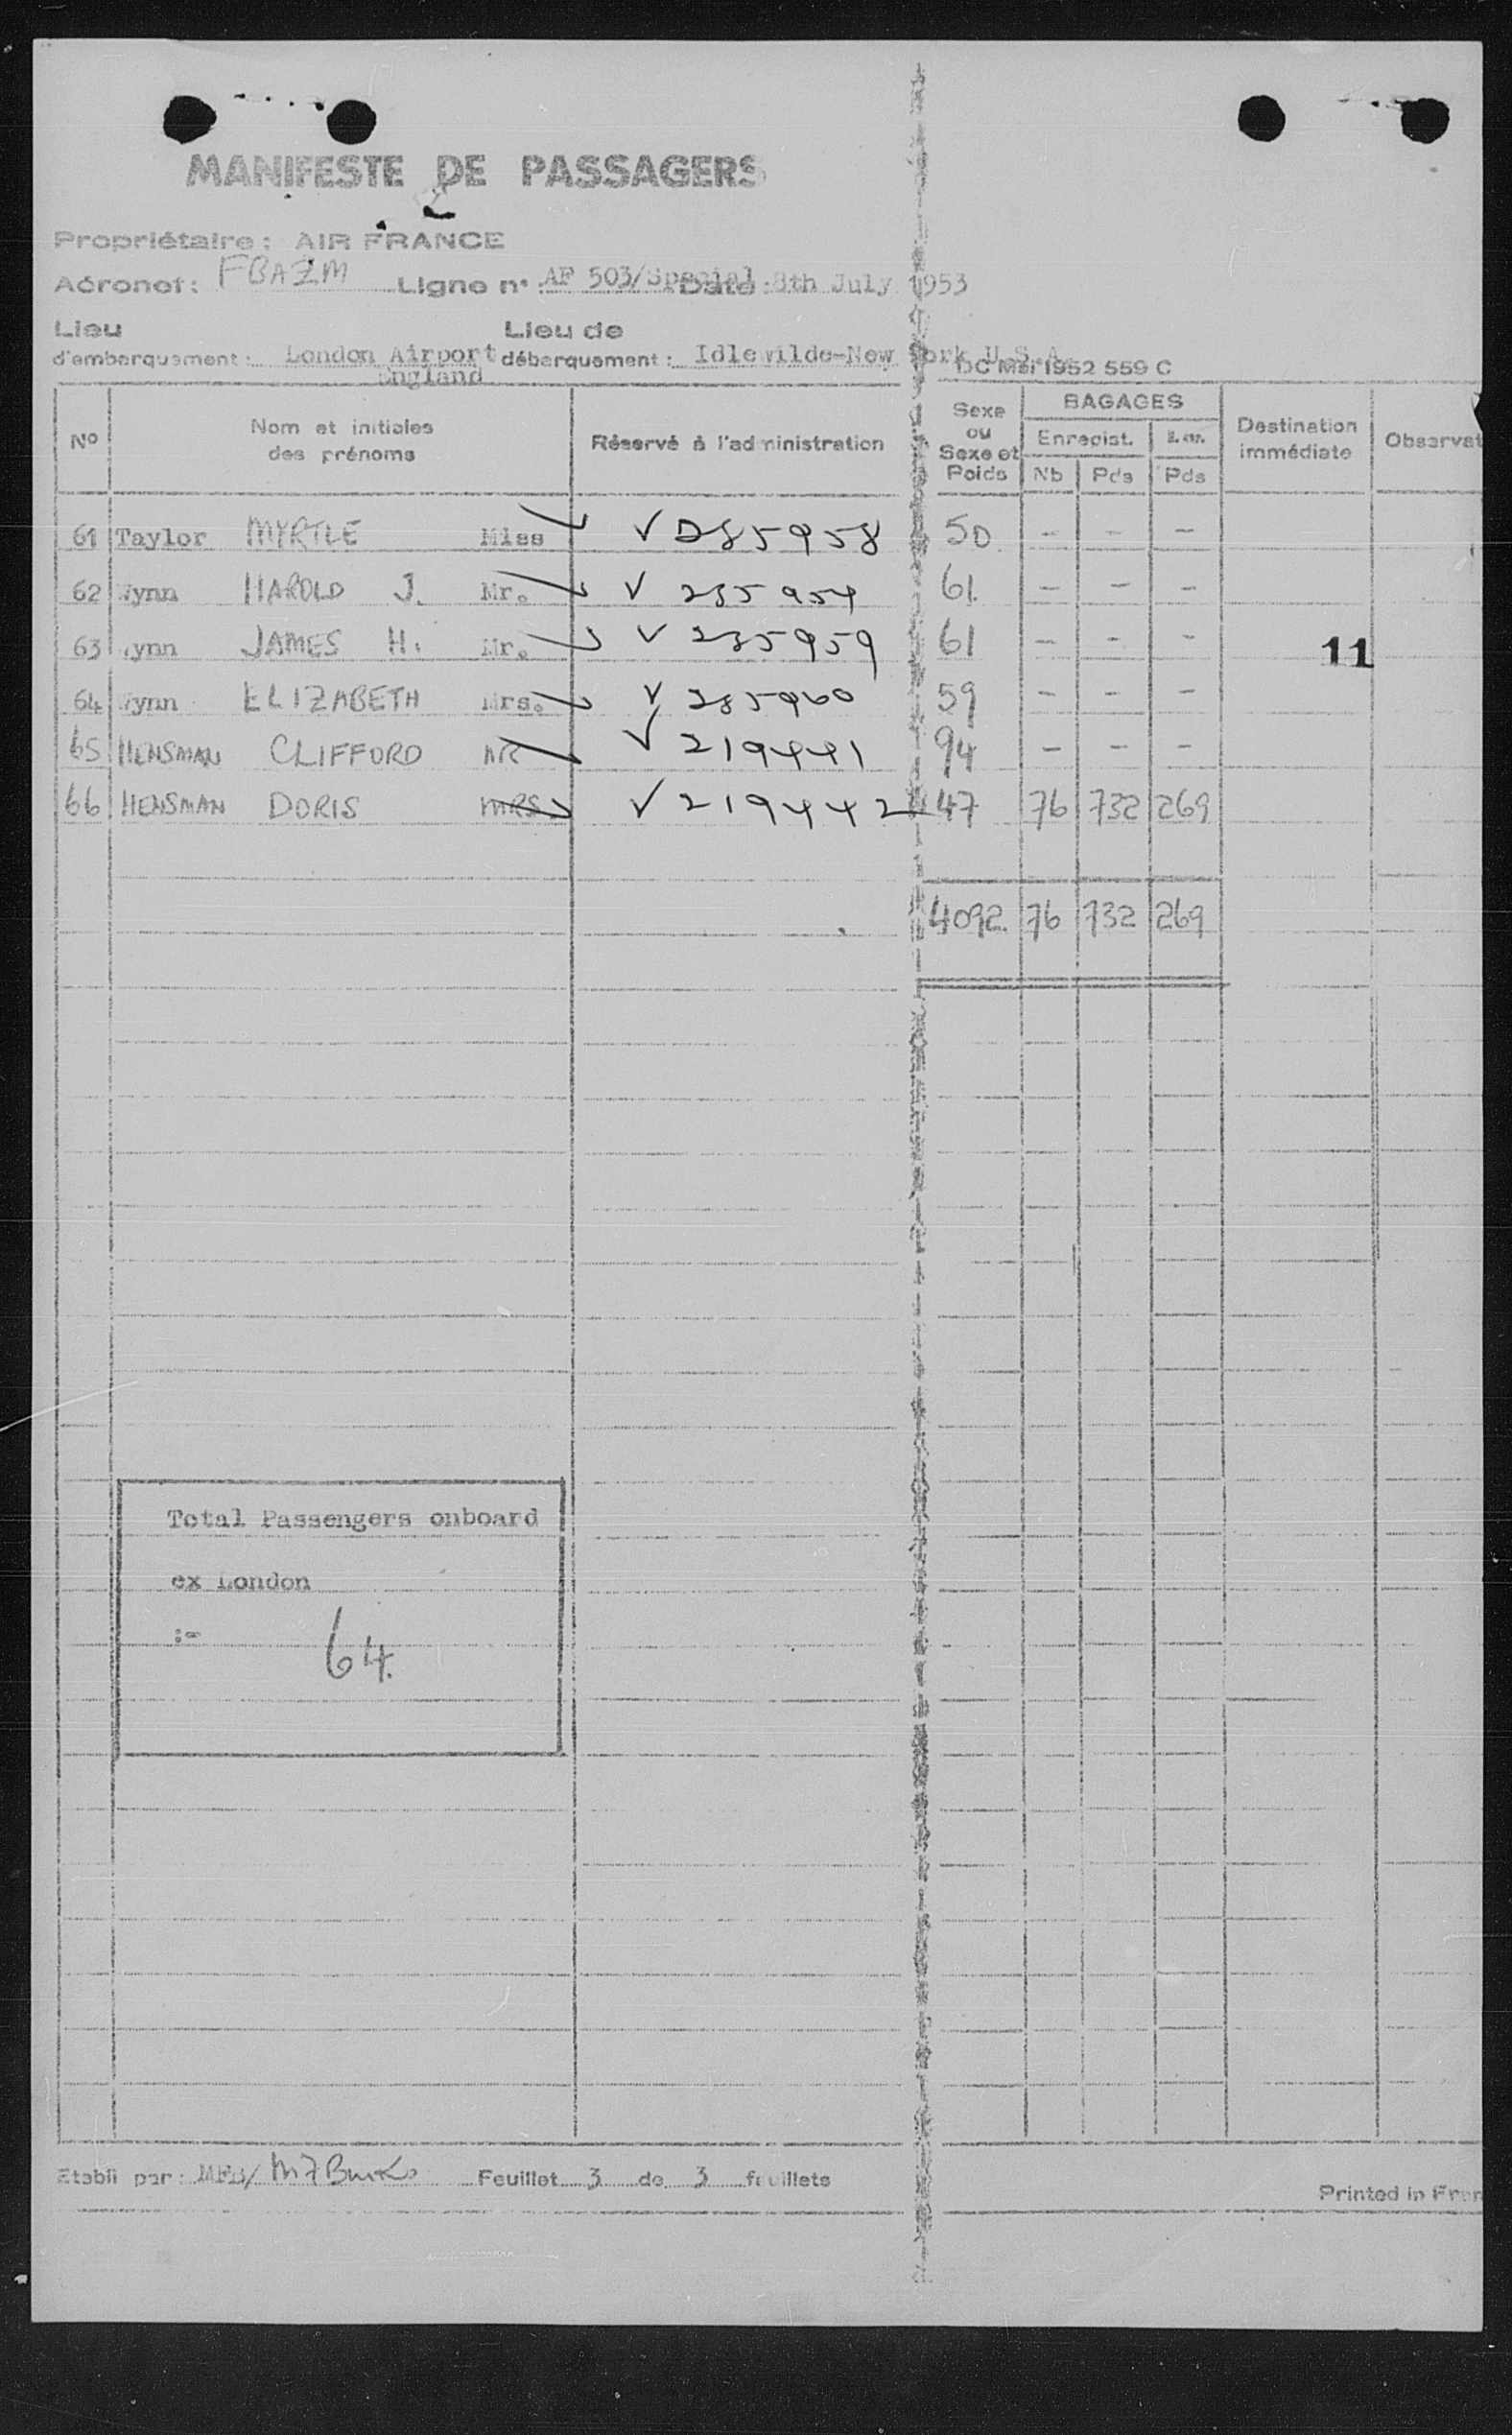 MANIFESTE DE PASSAGERS
Propriétaire : AIR FRANCE
Aéronef : FBAZM Ligne n° : AF 503/Special Date : 8th July 1953
Lieu d'embarquement : London Airport England Lieu de débarquement : Idlewilde-New York U.S.A.
DC Mai 1952 559 C
N° Nom et initiales des prénoms Réservé à l'administration Sexe ou Sexe et Poids BAGAGES Enregist. Nb Pds Pds Destination immédiate Observat
61 Taylor MYRTLE Miss V 285958 50 - - -
62 Wynn HAROLD J. Mr. V 285954 61. - - -
63 Wynn JAMES H. Mr. V 285959 61 - - -
11
64 Wynn ELIZABETH Mrs. V 285960 59 - - -
65 HENSMAN CLIFFORD MR V 219441 94 - - -
66 HENSMAN DORIS MRS. V 219442 47 76 732 269
4092. 76 732 269
Total Passengers onboard
ex London
:- 64.
Etabli par : MFB/ Feuillet 3 de 3 feuillets
Printed in Fran